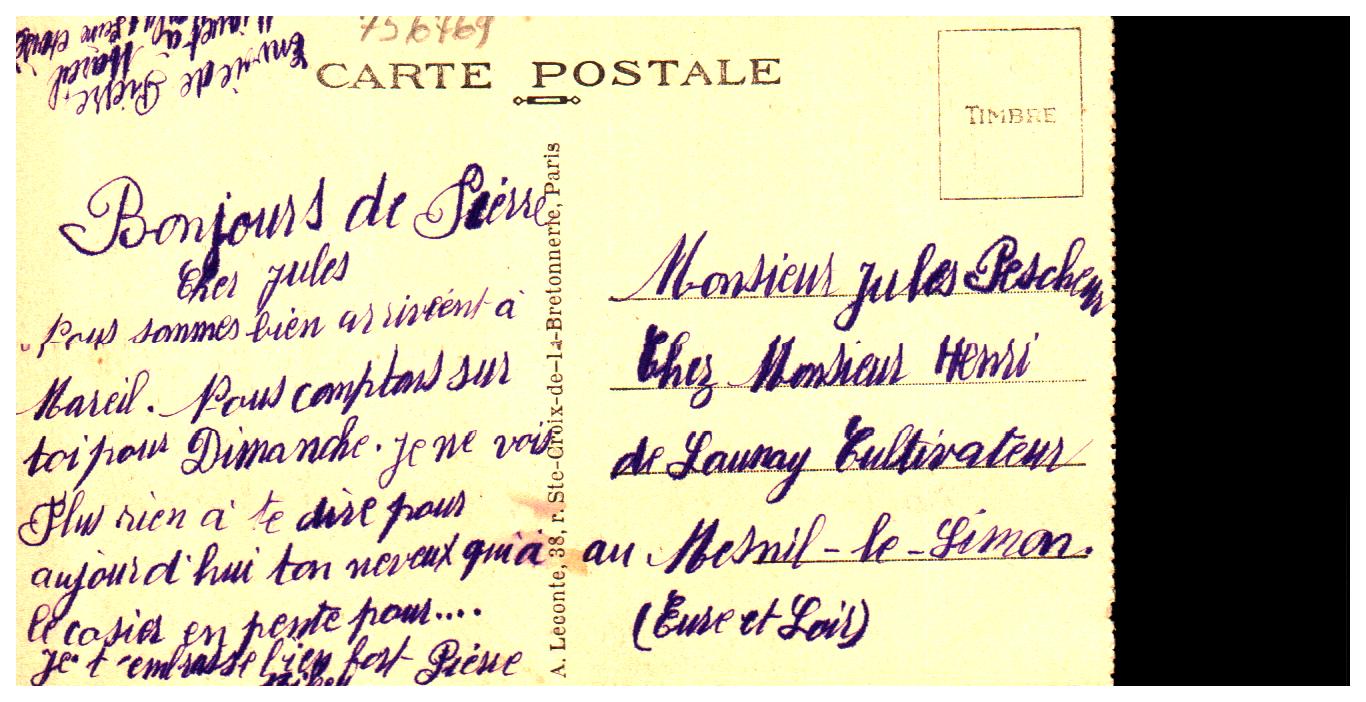 756769
CARTE POSTALE
TIMBRE
Envoie de Pierre
à Mareil
Bonjours de Piérre
Cher Jules
Nous sommes bien arrivéent à
Mareil. Nous comptons sur
toi pour Dimanche. Je ne vois
Plus rien à te dire pour
aujourd'hui ton neveux qui a
le casier en pente pour....
Je t'embrasse bien fort Piérre
A. Leconte, 38, r. Ste-Croix-de-la-Bretonnerie, Paris
Monsieur Jules Pescheur
Chez Monsieur Henri
de Launay Cultivateur
au Mesnil-le-Simon.
(Eure et Loir)